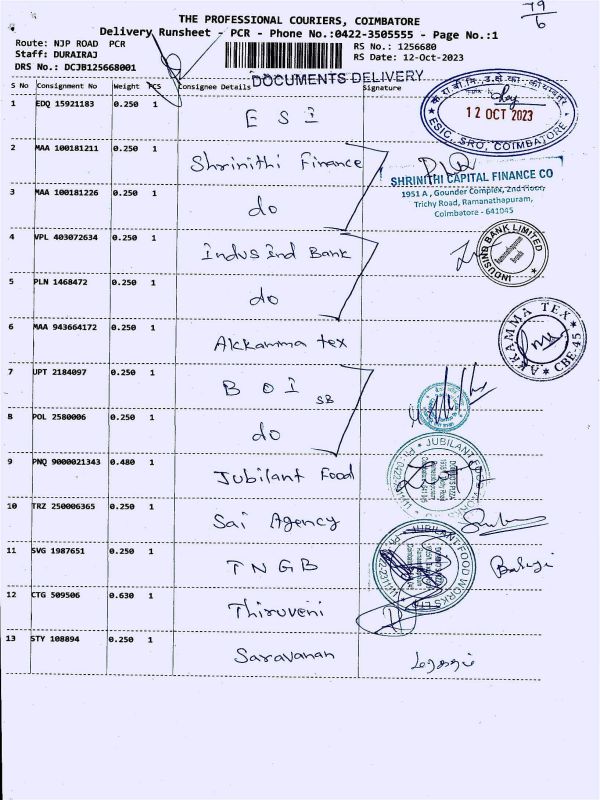 79
6
THE PROFESSIONAL COURIERS, COIMBATORE
Delivery Runsheet - PCR - Phone No.:0422-3505555 - Page No.:1
Route: NJP ROAD PCR
RS No.: 1256680
Staff: DURAIRAJ
RS Date: 12-Oct-2023
DRS No.: DCJB125668001
DOCUMENTS DELIVERY
S No Consignment No Weight PCS Consignee Details Signature
1 EDQ 15921183 0.250 1 E S I
12 OCT 2023
ESIC, SRO, COIMBATORE
2 MAA 100181211 0.250 1 Shrinithi Finance
SHRINITHI CAPITAL FINANCE CO
1951 A, Gounder Complex, 2nd Floor,
Trichy Road, Ramanathapuram,
Coimbatore - 641045
3 MAA 100181226 0.250 1 do
4 VPL 403072634 0.250 1 Indus Ind Bank
INDUSIND BANK LIMITED
Ramanathapuram
Branch
5 PLN 1468472 0.250 1 do
6 MAA 943664172 0.250 1 Akkamma tex
AKKAMMA TEX
CBE-45
7 UPT 2184097 0.250 1 B O I SB
8 POL 2580006 0.250 1 do
9 PNQ 9000021343 0.480 1 Jubilant Food
JUBILANT FOOD WORKS
10 TRZ 250006365 0.250 1 Sai Agency
11 SVG 1987651 0.250 1 T N G B
JUBILANT FOOD WORKS LTD
12 CTG 509506 0.630 1 Thiruveni
13 STY 108894 0.250 1 Saravanan